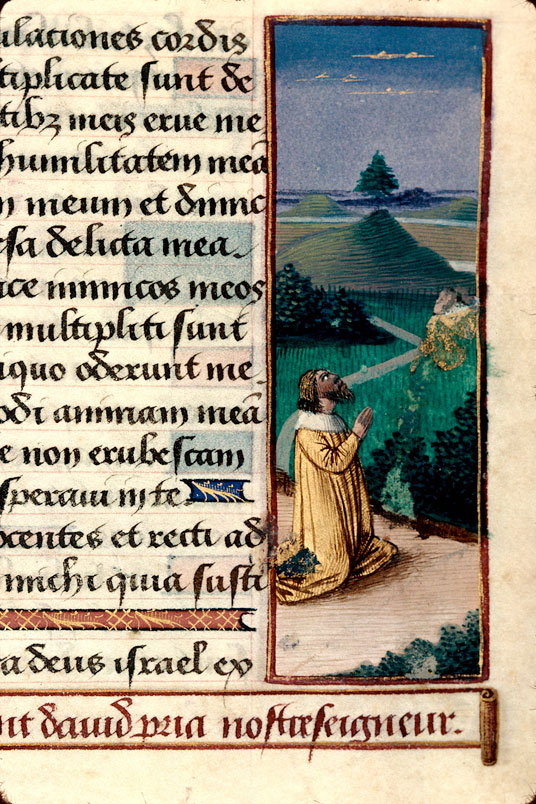 ulaciones cordis
tiplicate sunt de
tibz meis erue me
humilitatem meā
m meum et dimic
esa delicta mea.
ice inimicos meos
multipliti sunt
iquo oderunt me
odi animam meā
e non erubescam
speraui in te
ocentes et recti ad
michi quia susti
a deus israel ex
nt dauid pria nostreseigneur.